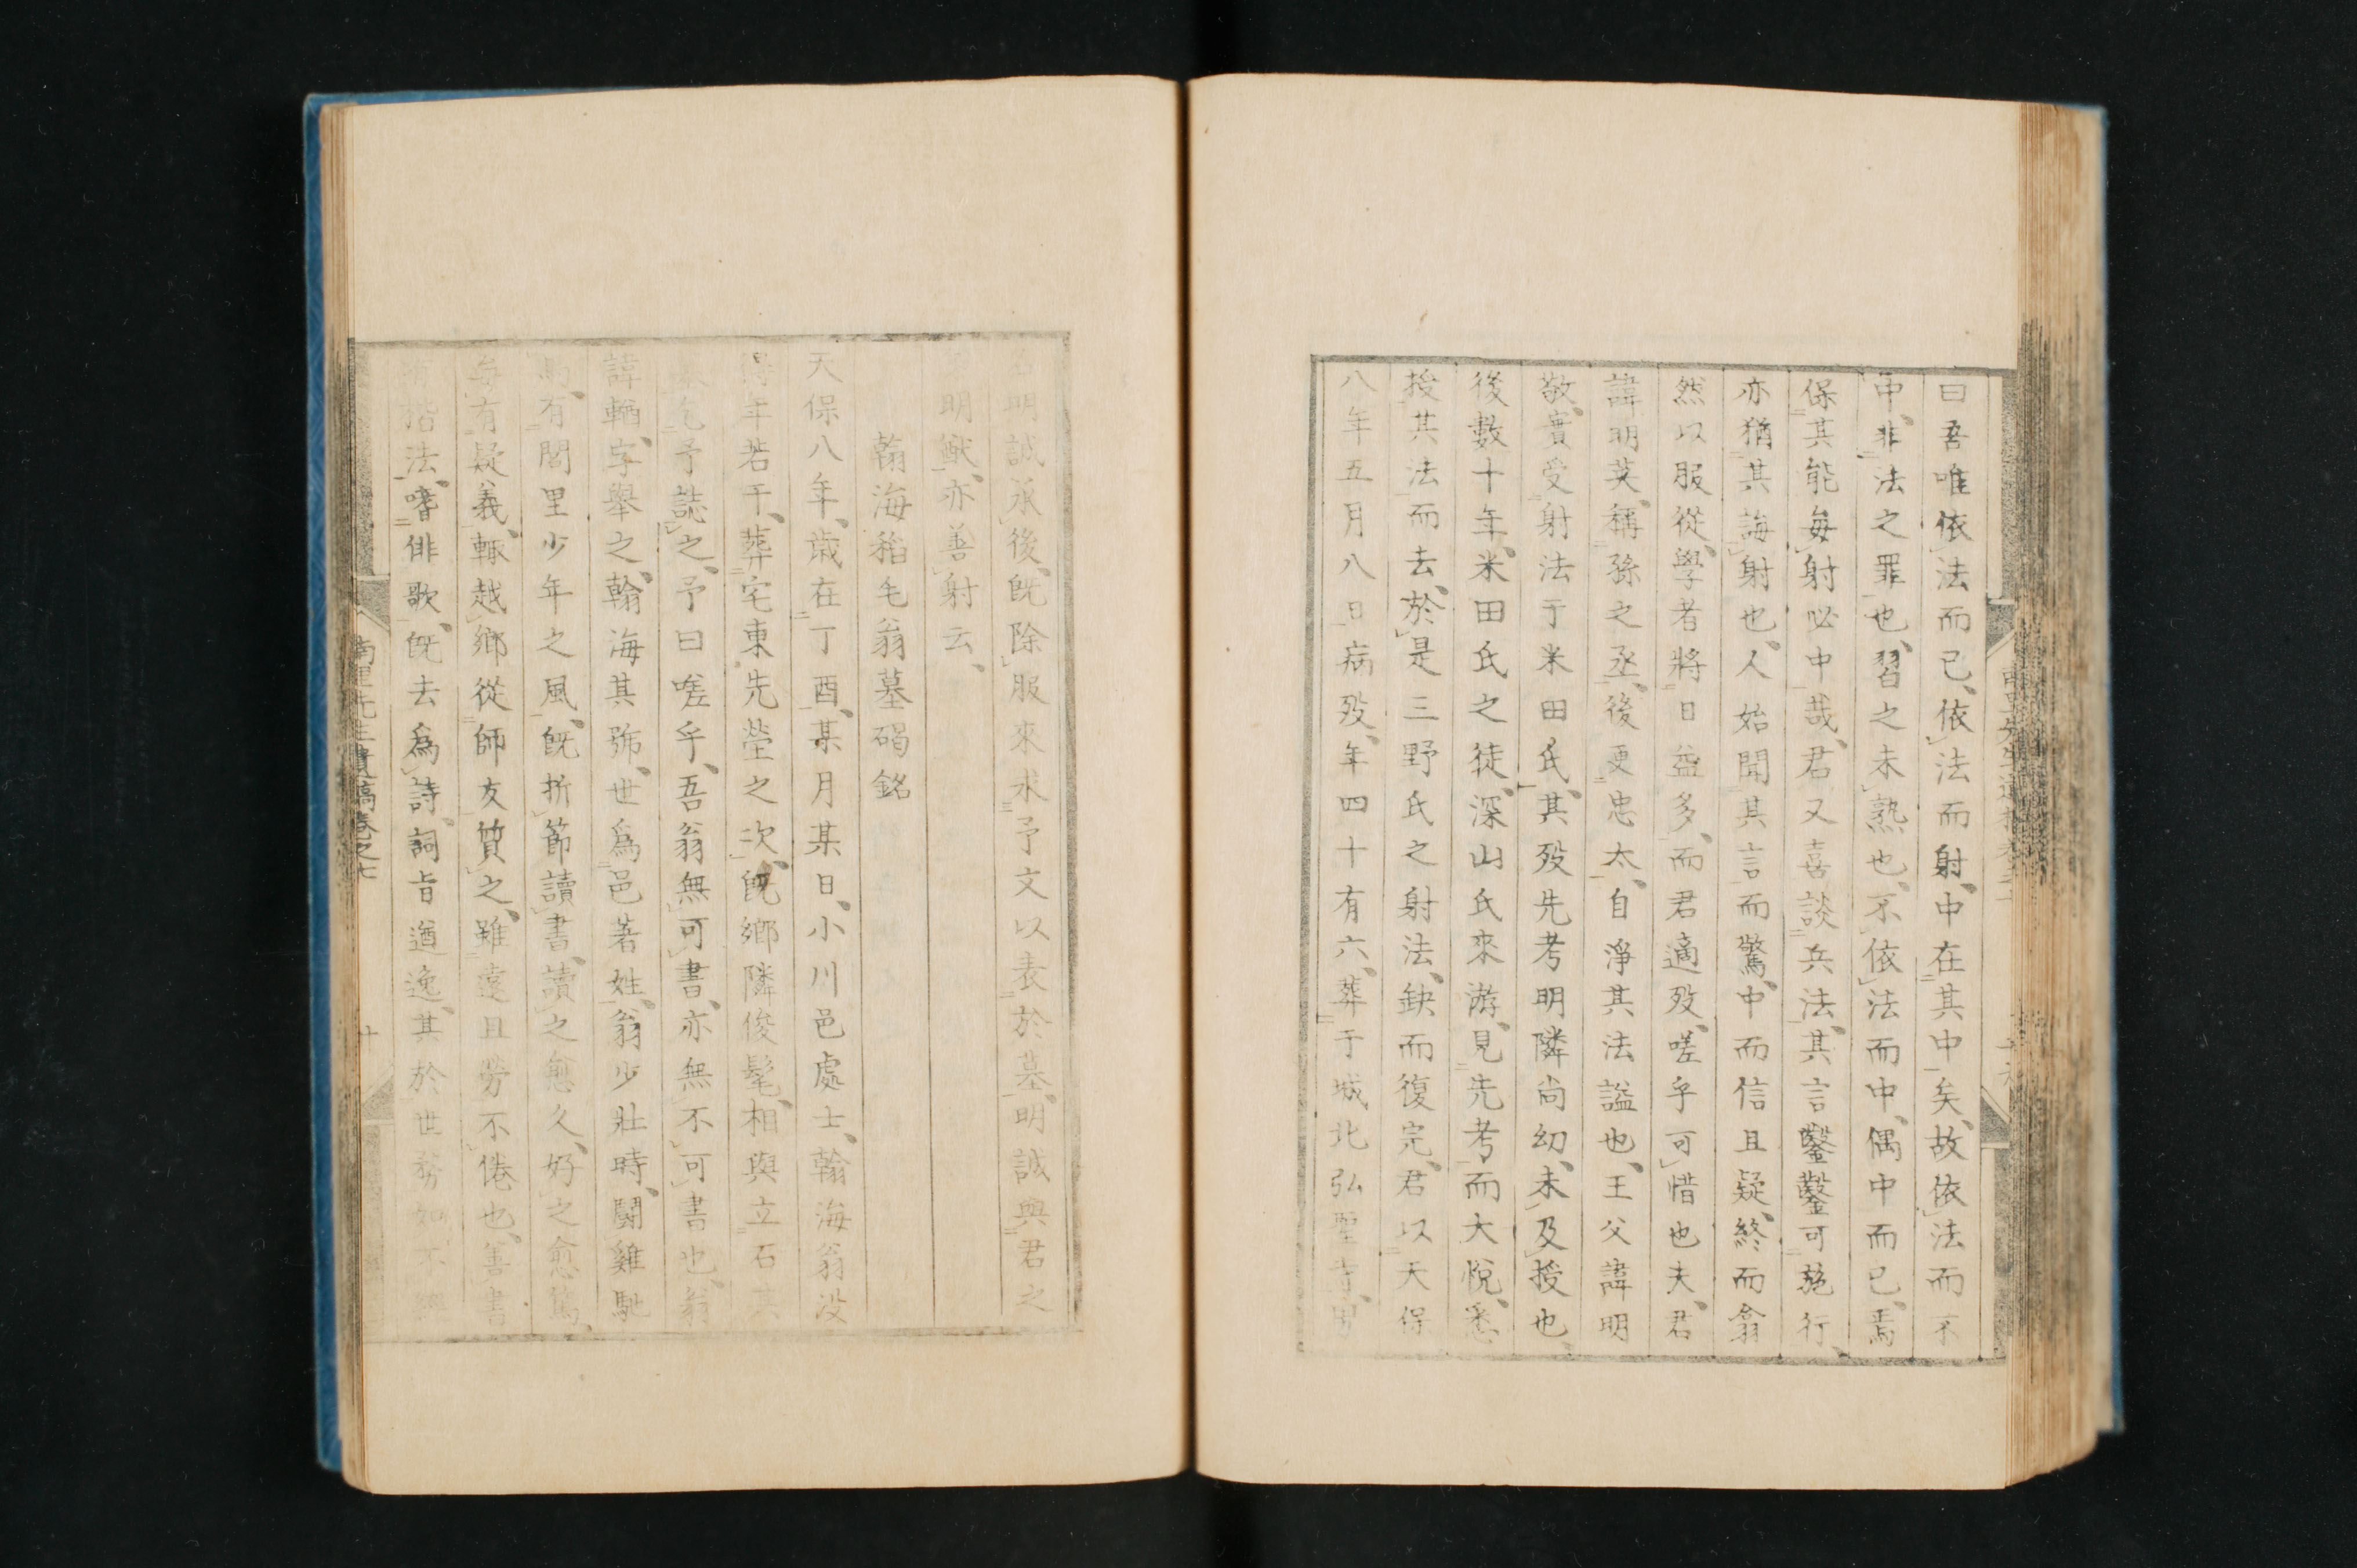 曰吾唯依法而已、依法而射、中在其中矣、故依法而不
中、非法之罪也、習之未熟也、不依法而中、偶中而已、焉
保其能每射必中哉、君又喜談兵法、其言鑿鑿可施行、
亦猶其誨射也、人始聞其言而驚、中而信且疑、終而翕
然以服從、學者將日益多、而君適歿、嗟乎可惜也夫、君
諱明英、稱孫之丞、後更忠太、自淨其法謚也、王父諱明
敬、實受射法于米田氏、其歿先考明隣尚幼、未及授也、
後數十年、米田氏之徒、深山氏來游、見先考而大悅、悉
授其法而去、於是三野氏之射法、缺而復完、君以天保
八年五月八日病歿、年四十有六、葬于城北弘聖寺、男
明誠承後、既除服來求予文以表於墓、明誠與君之
明猷、亦善射云、
翰海稻毛翁墓碣銘
天保八年、歳在丁酉、某月某日、小川邑處士、翰海翁没
年若干、葬宅東先塋之次、既鄉隣俊髦、相與立石其
乞予誌之、予曰嗟乎、吾翁無可書、亦無不可書也、翁
諱輶、字舉之、翰海其號、世爲邑著姓、翁少壯時、鬪雞馳
馬、有閭里少年之風、既折節讀書、讀之愈久、好之愈篤、
每有疑義、輒越鄉從師友質之、雖遠且勞不倦也、善書
楷法、嗜俳歌、既去爲詩、詞旨遒逸、其於世務如不經
南里先生遺稿卷之七
十